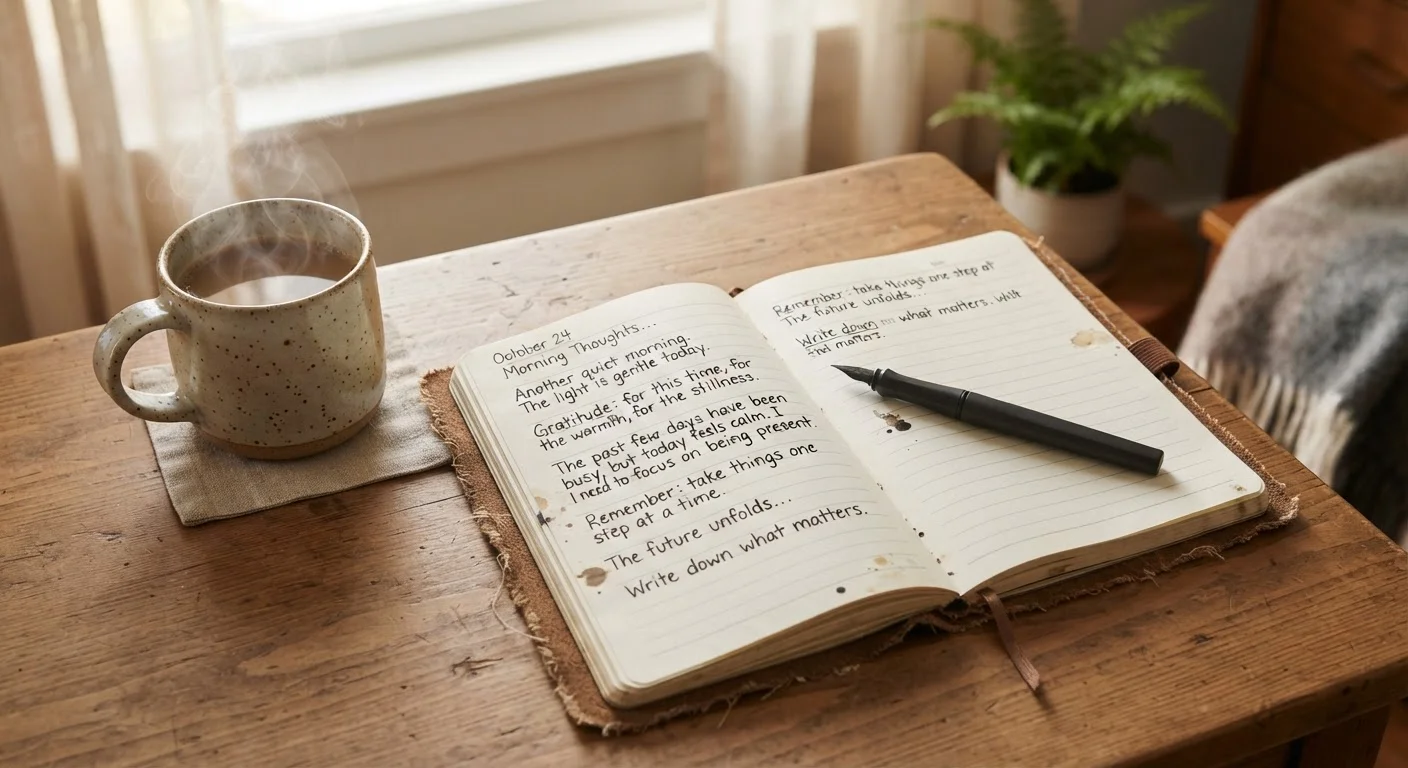 October 24
Morning Thoughts...
Another quiet morning.
The light is gentle today.
Gratitude: for this time, for
the warmth, for the stillness.
The past few days have been
busy, but today feels calm. I
need to focus on being present.
Remember: take things one
step at a time.
The future unfolds...
Write down what matters.
Remember: take things one step at
The future unfolds...
Write down what matters.
matters.